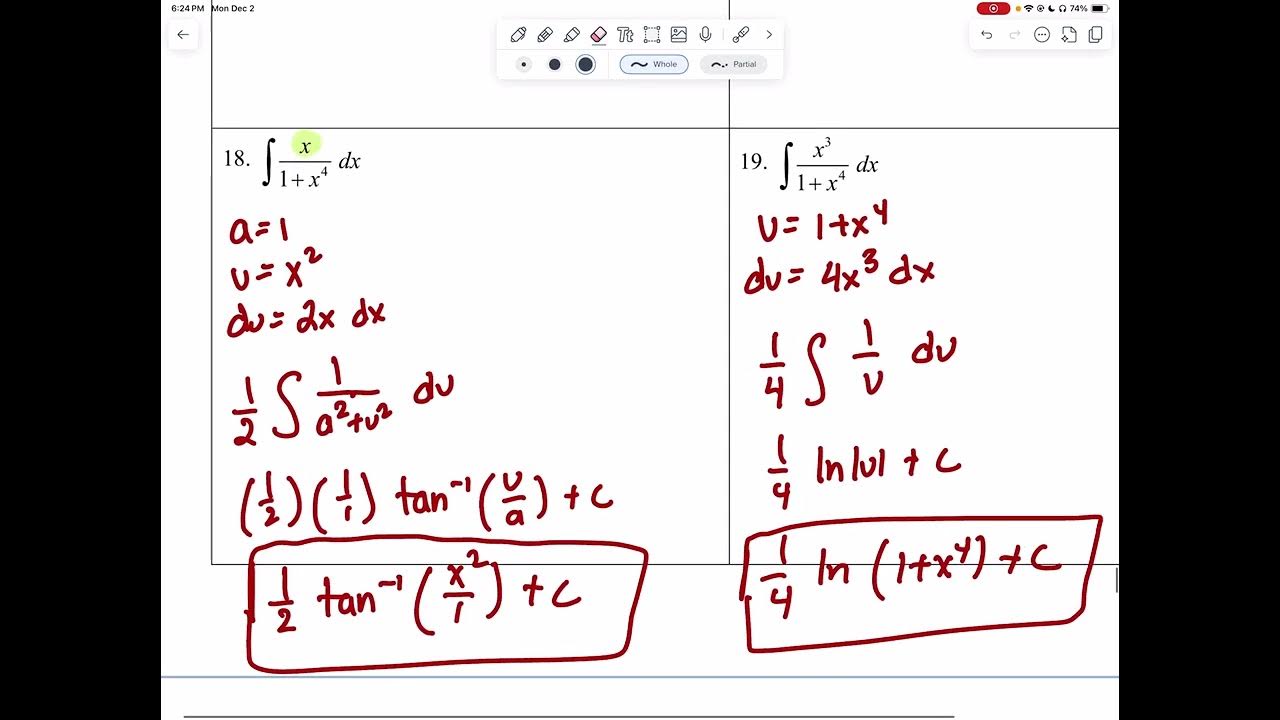 6:24 PM Mon Dec 2
74%
Whole
Partial
18. ∫ x/(1+x⁴) dx
a = 1
u = x²
du = 2x dx
1/2 ∫ 1/(a²+u²) du
(1/2)(1/1) tan⁻¹(u/a) + c
1/2 tan⁻¹(x²/1) + c
19. ∫ x³/(1+x⁴) dx
u = 1+x⁴
du = 4x³ dx
1/4 ∫ 1/u du
1/4 ln|u| + c
1/4 ln (1+x⁴) + c